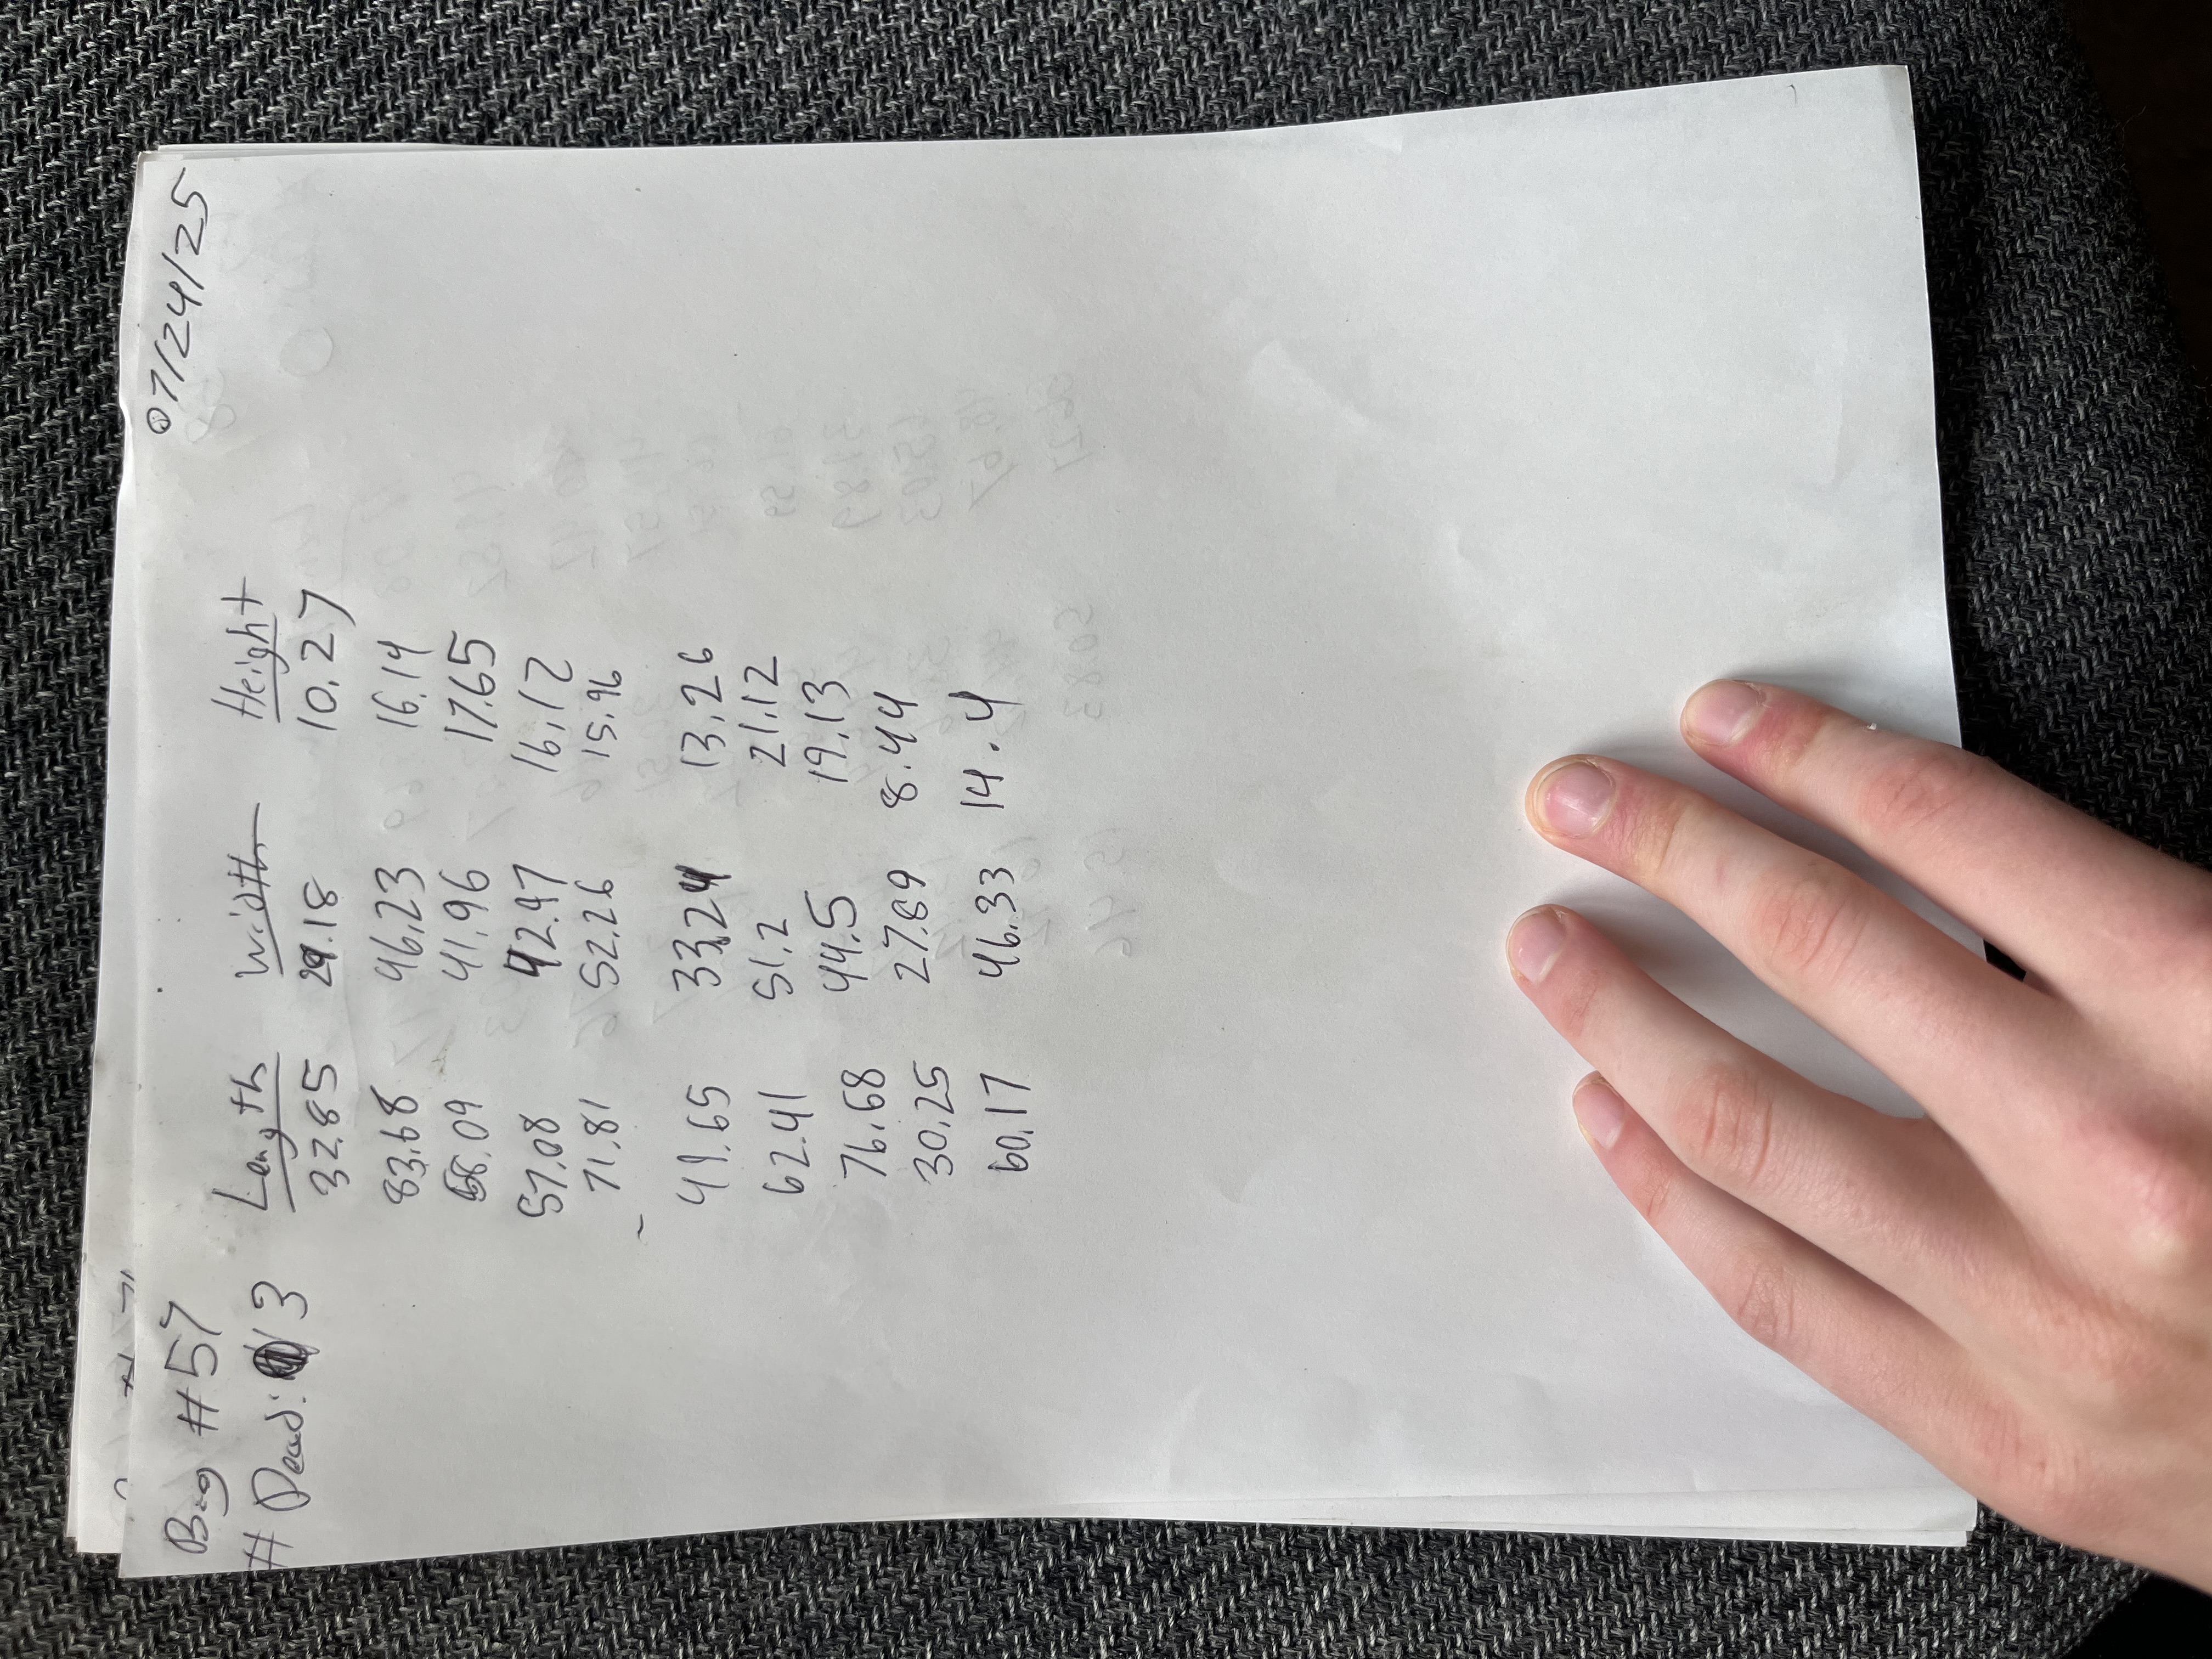 07/24/25
Bag #57
# Dead: 13
Length Width Height
32.85 29.18 10.27
83.68 46.23 16.14
58.09 41.96 17.65
57.08 42.47 16.12
71.81 52.26 15.96
41.65 33.24 13.26
62.41 51.2 21.12
76.68 44.5 19.13
30.25 27.89 8.44
60.17 46.33 14.4